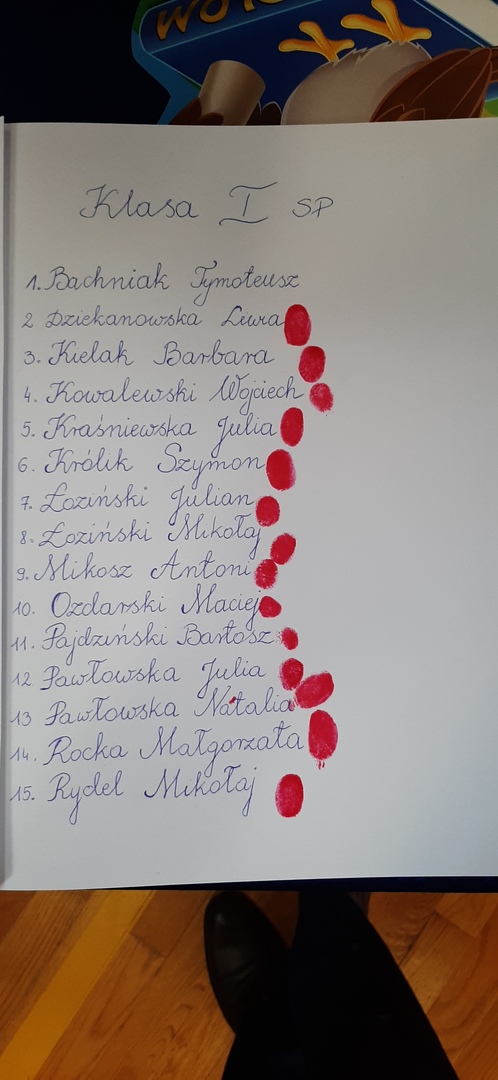 Klasa I SP
1. Bachniak Tymoteusz
2 Dziekanowska Liwia
3. Kielak Barbara
4. Kowalewski Wojciech
5. Kraśniewska Julia
6. Królik Szymon
7. Łoziński Julian
8. Łoziński Mikołaj
9. Mikosz Antoni
10. Ozdarski Maciej
11. Pajdziński Bartosz
12 Pawłowska Julia
13 Pawłowska Natalia
14. Rocka Małgorzata
15. Rydel Mikołaj